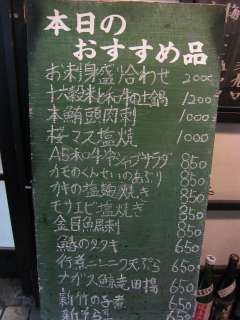 本日の
おすすめ品
お刺身盛り合わせ 2000
十六穀米と和牛の土鍋 1200
本鮪頭肉刺 1000
桜マス塩焼 1000
A5和牛冷シャブサラダ 850
カモのくんせいのあぶり 850
カキの塩麹焼き 850
モサエビ塩焼き 850
金目鯛刺 850
鯵のタタキ 650
行者ニンニク天ぷら 650
ナガス鯨竜田揚 650
新竹の子煮 650
650